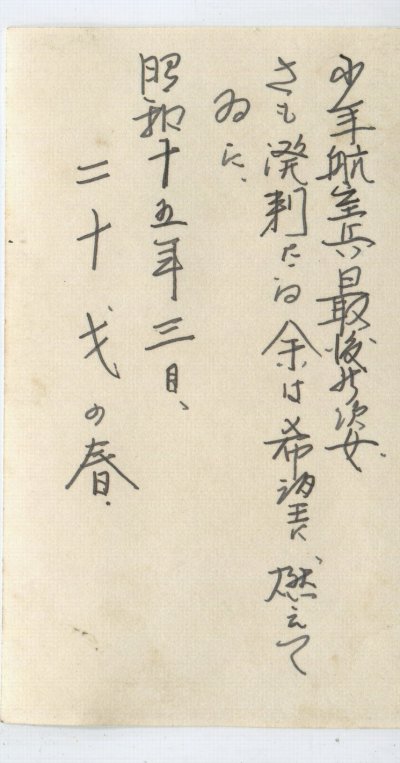 少年航空兵最後の姿、
さも溌剌たる余は希望に燃えて
ゐた、
昭和十五年三月、
二十才の春、